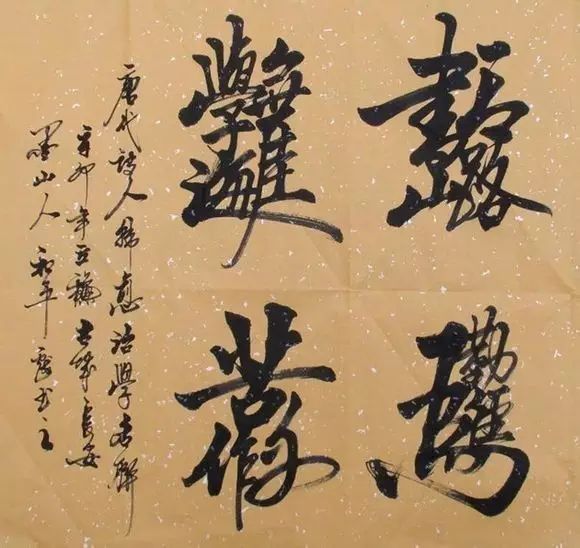 書山有路
勤為徑
學海無涯
苦作舟
唐代詩人韓愈治學名聯
辛卯年古城長安
墨山人和平書之